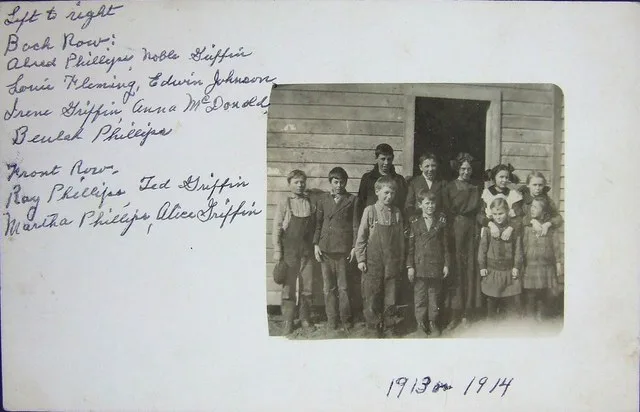 Left to right
Back Row:
Alred Phillips, Noble Griffin
Louie Fleming, Edwin Johnson
Irene Griffin, Anna McDonald,
Beulah Phillips
Front Row.
Ray Phillips, Ted Griffin
Martha Phillips, Alice Griffin
1913 or 1914